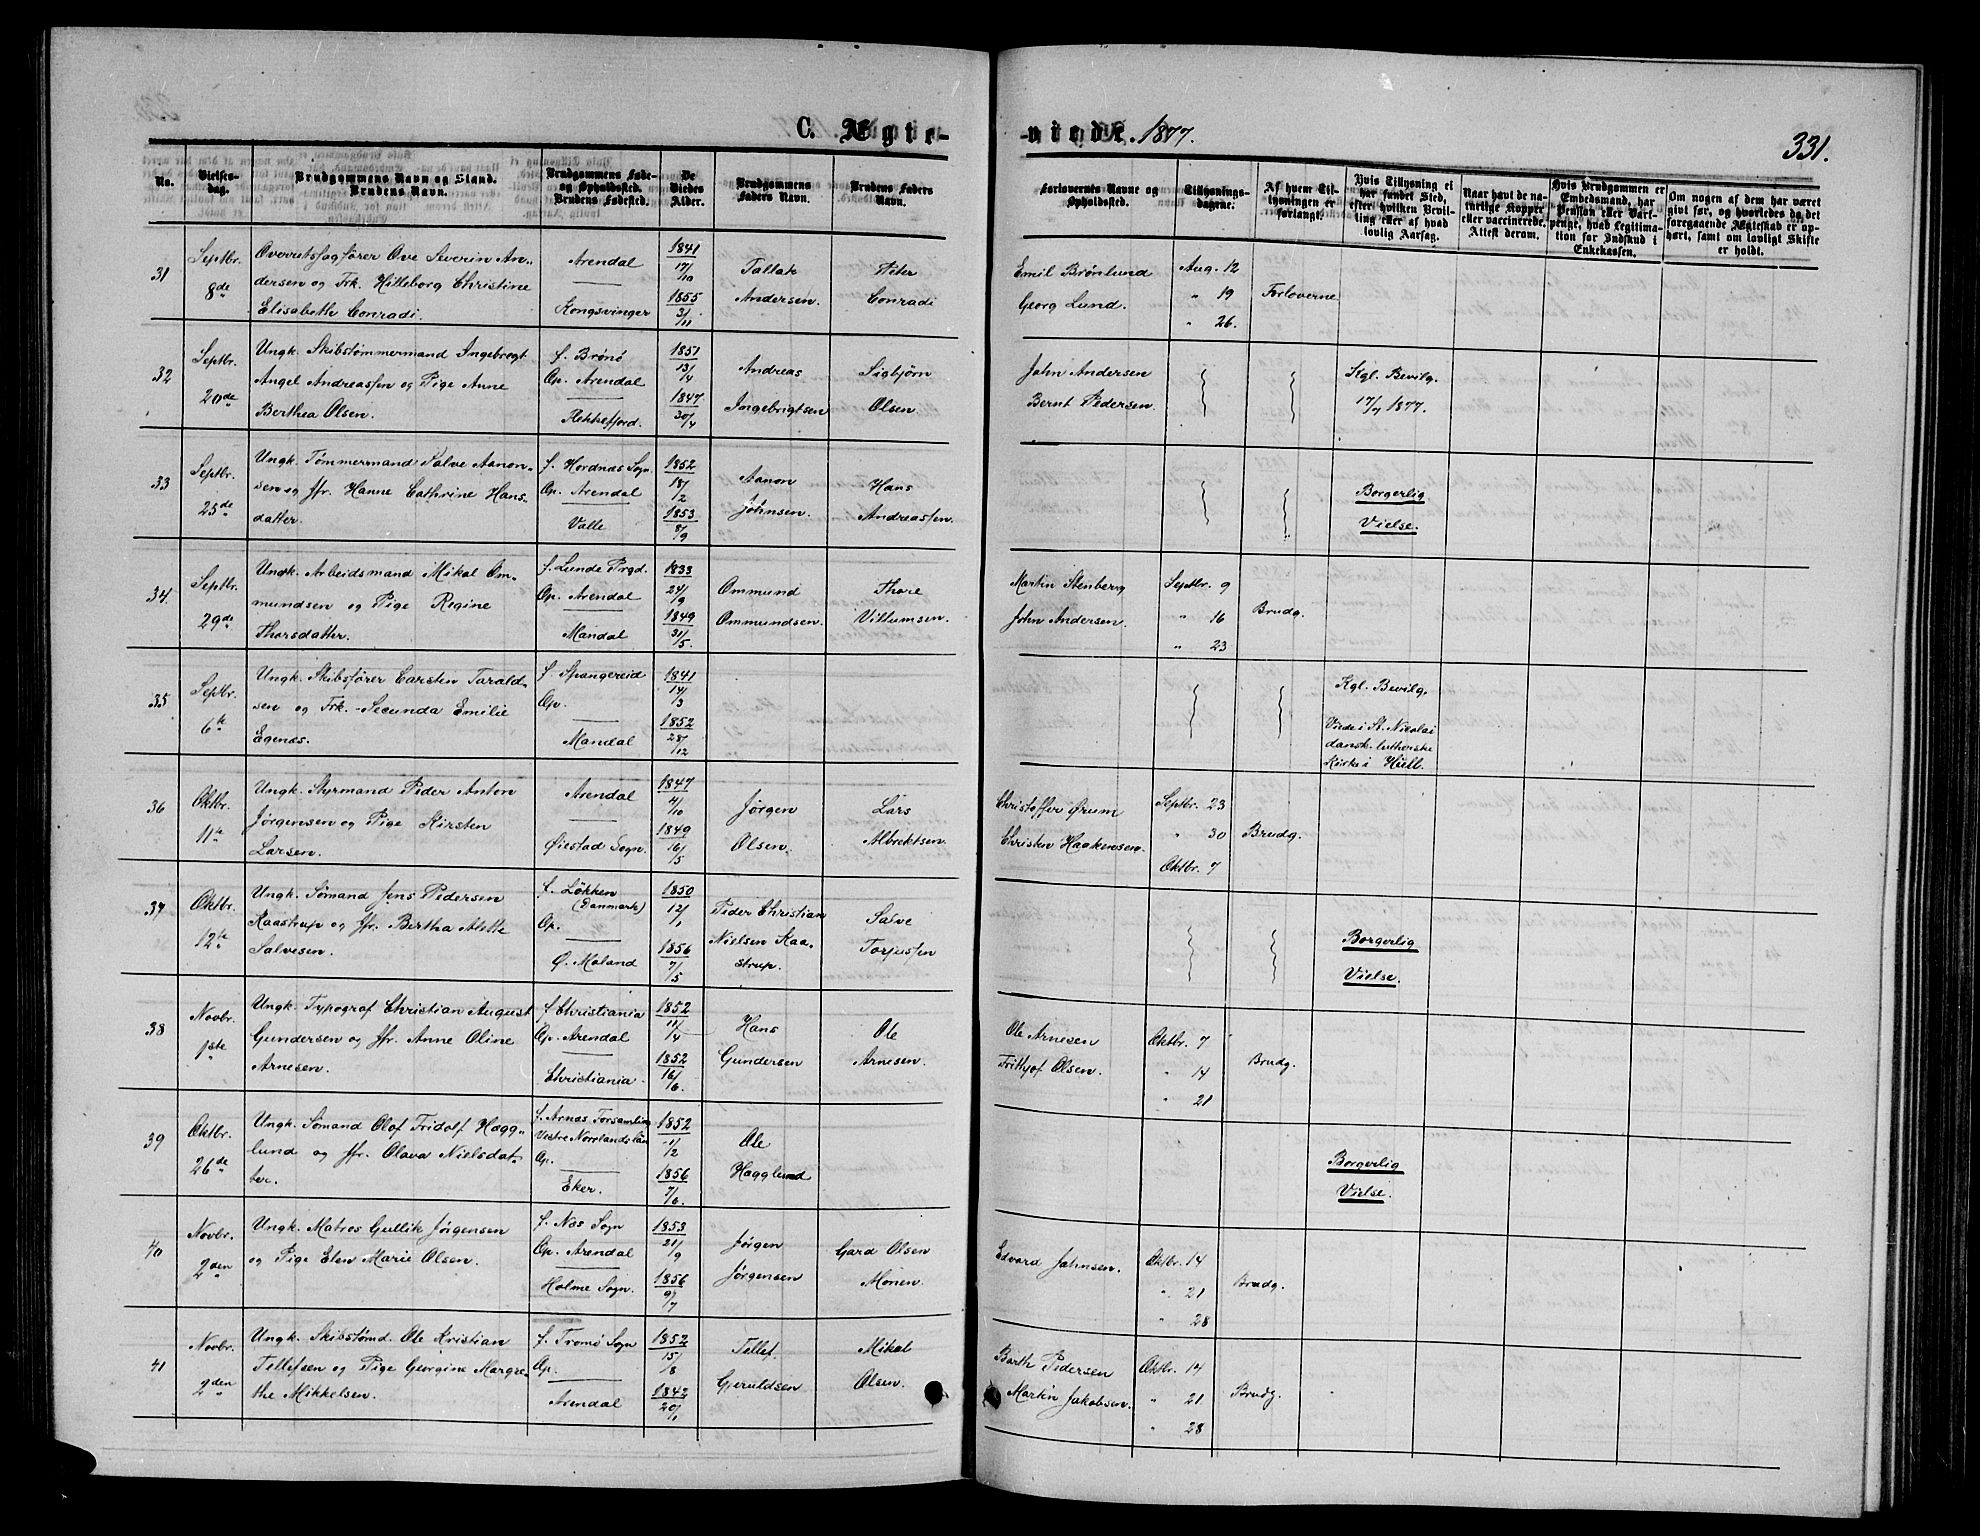 C. Ægte-
-viede. 1877.
331.
No.
Vielses-
dag.
Brudgommens Navn og Stand.
Brudens Navn.
Brudgommens Føde-
og Opholdssted.
Brudens Fødested.
De
Viedes
Alder.
Brudgommens
Faders Navn.
Brudens Faders
Navn.
Forlovernes Navne og
Opholdssted.
Tillysnings-
dagene.
Af hvem Til-
lysningen er
forlangt.
Hvis Tillysning ei
har fundet Sted,
efter hvilken Bevil-
ling eller af hvad
lovlig Aarsag.
Naar havt de na-
turlige Kopper
eller vaccinerede.
Attest derom.
Hvis Brudgommen er
Embedsmand, har
Pension eller Vart-
penge, hvad Legitima-
tion for Indskud i
Enkekassen.
Om nogen af dem har været
gift før, og hvorledes da det
foregaaende Ægteskab er op-
hørt, samt om lovligt Skifte
er holdt.
31
Septbr.
8de
Overretssagfører Ove Severin An-
dersen og Frk. Hilleborg Christine
Elisabeth Conradi.
Arendal
Kongsvinger
1841
17/10
1855
31/11
Tallak
Andersen.
Peter
Conradi
Emil Brønlund
Georg Lund.
Aug. 12
" 19
" 26.
Forloverne
32
Septbr.
20de
Ungk. Skibstømmermand Ingebregt
Angel Andreassen og Pige Anne
Berthea Olsen.
f. Brønø
Op. Arendal
Flekkefjord.
1851
13/4
1847
30/4
Andreas
Ingebrigtsen
Sigbjørn
Olsen.
John Andersen
Bernt Pedersen.
Kgl. Bevilg.
17/7 1877.
33
Septbr.
25de
Ungk. Tømmermand Salve Aanon-
sen og Jfr. Hanne Cathrine Hans-
datter.
f. Hordnæs Sogn.
Op. Arendal
Valle
1852
18/2
1853
8/9
Aanon
Johnsen.
Hans
Andreassen.
Borgerlig
Vielse.
34.
Septbr.
29de
Ungk. Arbeidsmand Mikal Om-
mundsen og Pige Regine
Thorsdatter.
f. Lunde Prgd.
Op. Arendal
Mandal
1833
24/9
1849
31/5.
Ommund
Ommundsen.
Thore
Villumsen.
Martin Stenberg
John Andersen.
Septbr. 9
" 16
" 23
Brudg.
35
Septbr.
6te
Ungk. Skibsfører Carsten Tarald-
sen og Frk. Secunda Emilie
Egenæs.
f. Spangereid
Op.
Mandal
1841
14/3
1852
28/12
Kgl. Bevilg.
Viede i St. Nicolai
dansk-lutherske
Kirke i Hull.
36
Oktbr.
11te
Ungk. Styrmand Peder Anton
Jørgensen og Pige Kirsten
Larsen.
Arendal
Øiestad Sogn.
1847
4/10
1849
16/5
Jørgen
Olsen.
Lars
Albrektsen.
Christoffer Ørum
Christen Haakensen.
Septbr. 23
" 30
Oktbr. 7
Brudg.
37
Oktbr.
12te
Ungk. Sømand Jens Pedersen
Kaastrup og Jfr. Bertha Alette
Salvesen.
f. Løkken
(Danmark)
Op.
Ø. Moland
1850
12/1
1856
7/5
Peder Christian
Nielsen Kaa-
strup.
Salve
Torjussen
Borgerlig
Vielse.
38
Novbr.
1ste
Ungk. Typograf Christian August
Gundersen og Jfr. Anne Oline
Arnesen.
f. Christiania
Op. Arendal
Christiania.
1852
11/4
1852
16/6.
Hans
Gundersen
Ole
Arnesen.
Ole Arnesen
Frithjof Olsen.
Oktbr. 7
" 14
" 21
Brudg.
39
Oktbr.
26de
Ungk. Sømand Olof Fridolf Hagg-
lund og Jfr. Olava Nielsdat-
ter.
f. Arnäs Forsamling
Vestre Norrlands län
Op.
Eker.
1852
1/2
1856
7/6.
Ole
Hagglund
Borgerlig
Vielse.
40
Novbr.
2den
Ungk. Matros Gullik Jørgensen
og Pige Elen Marie Olsen.
f. Næs Sogn
Op. Arendal
Holme Sogn.
1853
21/9
1856
9/7
Jørgen
Jørgensen
Gard Olsen
Monen.
Edvard Jahnsen.
Oktbr. 14
". 21
" 28
Brudg.
41
Novbr.
2den
Ungk. Skibstømd. Ole Kristian
Tellefsen og Pige Georgine Margre-
the Mikkelsen.
f. Tromø Sogn
Op.
Arendal
1852
15/8
1842
20/1
Tellef.
Gjeruldsen
Mikal
Olsen.
Barth Pedersen
Martin Jakobsen.
Oktbr. 14
" 21
" 28
Brudg.